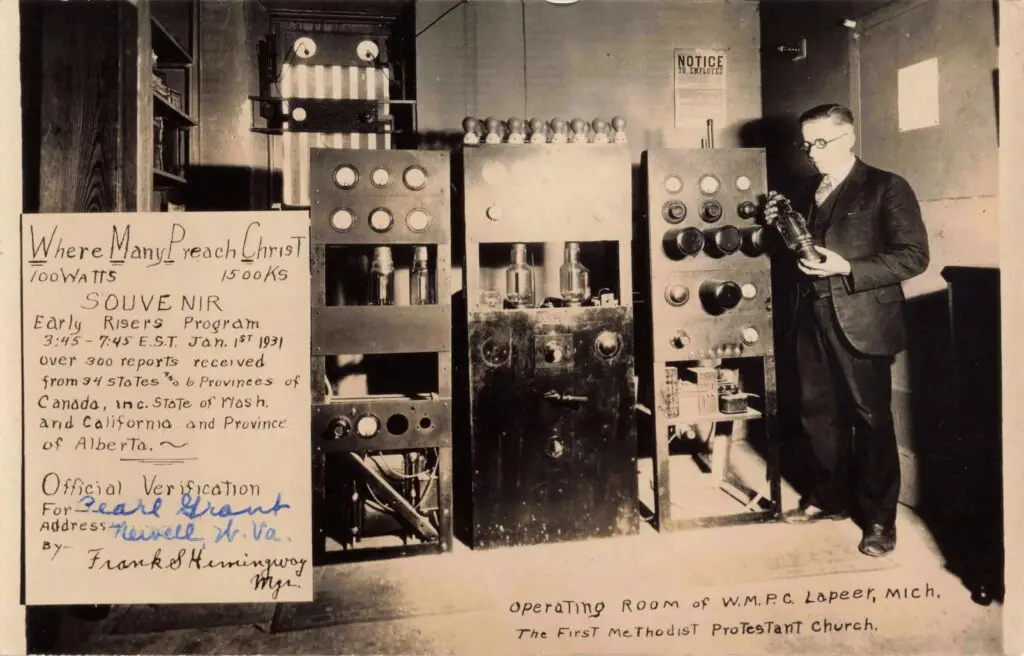 NOTICE
TO EMPLOYES
Where Many Preach Christ
100 Watts 1500 KS
SOUVENIR
Early Risers Program
3:45 - 7:45 E.S.T. Jan. 1ST 1931
over 300 reports received
from 34 states & 6 Provinces of
Canada, inc. State of Wash.
and California and Province
of Alberta. ~
Official Verification
For- Pearl Grant
Address- Newell W. Va.
By- Frank S Hemingway
Mgr.
Operating Room of W.M.P.C. Lapeer, Mich.
The First Methodist Protestant Church.